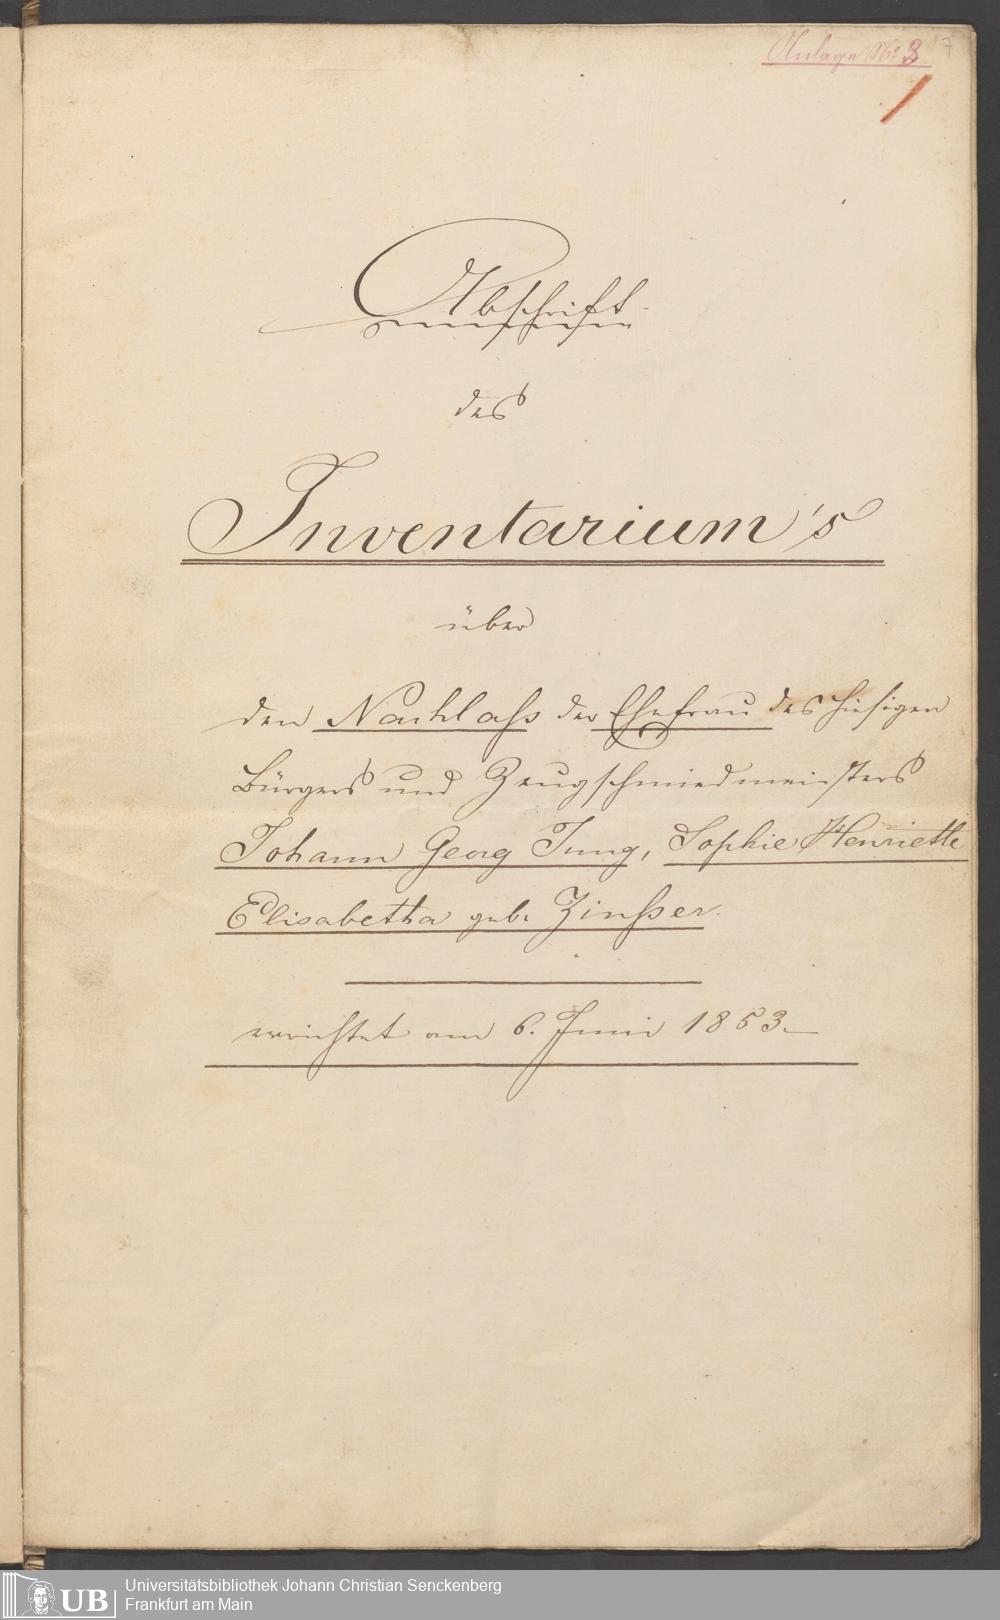 Anlage No. 3
7
Abschrift
des
Inventarium's
über
den Nachlaß der Ehefrau des hiesigen
Bürgers und Zeugschmiedmeisters
Johann Georg Jung, Sophie Henriette
Elisabetha geb. Zinßer.
errichtet am 6. Juni 1853.
UB
Universitätsbibliothek Johann Christian Senckenberg
Frankfurt am Main